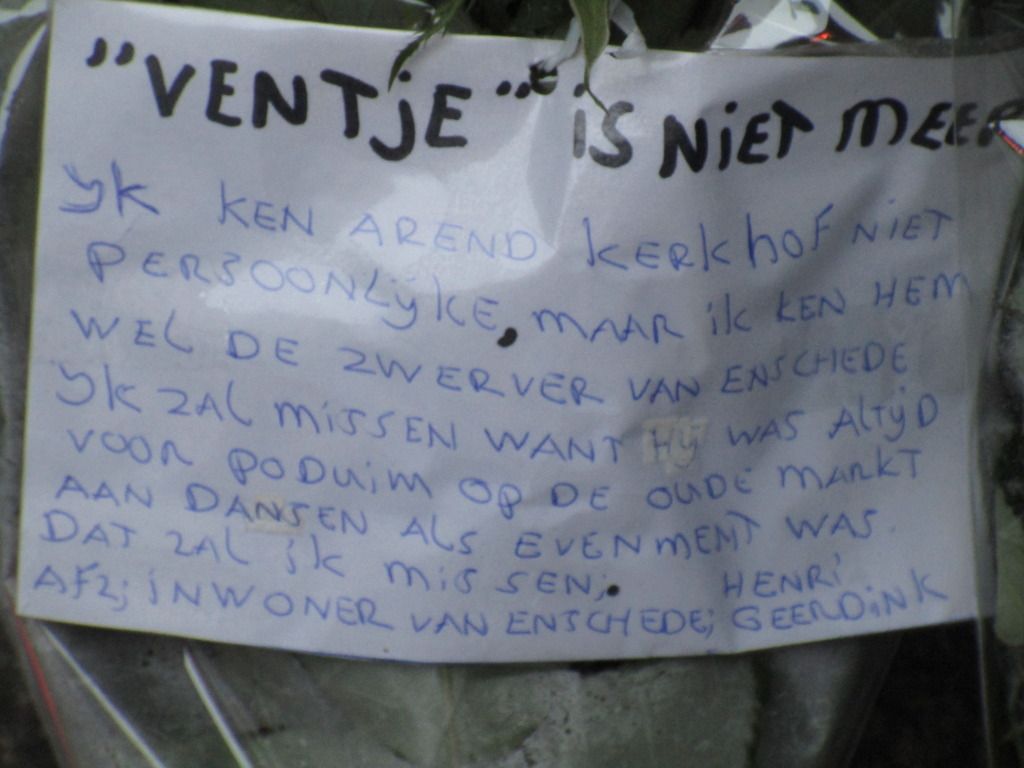 "VENTjE" iS NiET MEER
YK KEN AREND KERKhOF NIET
PERSOONLYKE, MAAR iK KEN HEM
WEL DE ZWERVER VAN ENSCHEDE
YK ZAL MISSEN WANT HY WAS ALTYD
VOOR PODUIM OP DE OUDE MARKT
AAN DANSEN ALS EVENMENT WAS.
DAT ZAL iK MISSEN;. HENRi
AFZ; iNWONER VAN ENSCHEDE; GEERDiNK